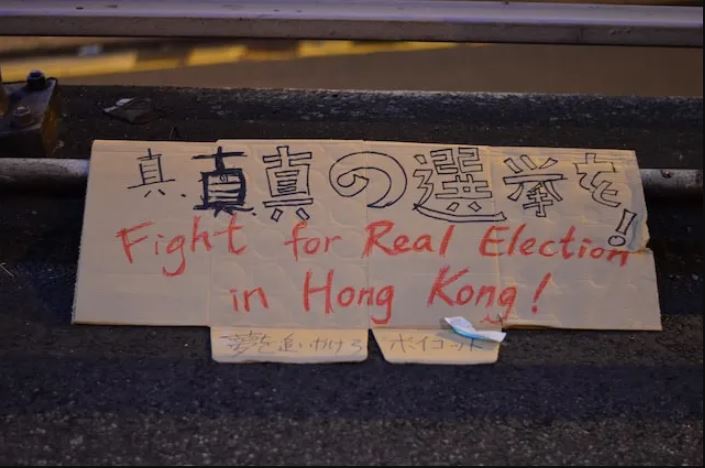 真.真真の選挙を!
Fight for Real Election
in Hong Kong!
夢を追いかけろ ボイコット